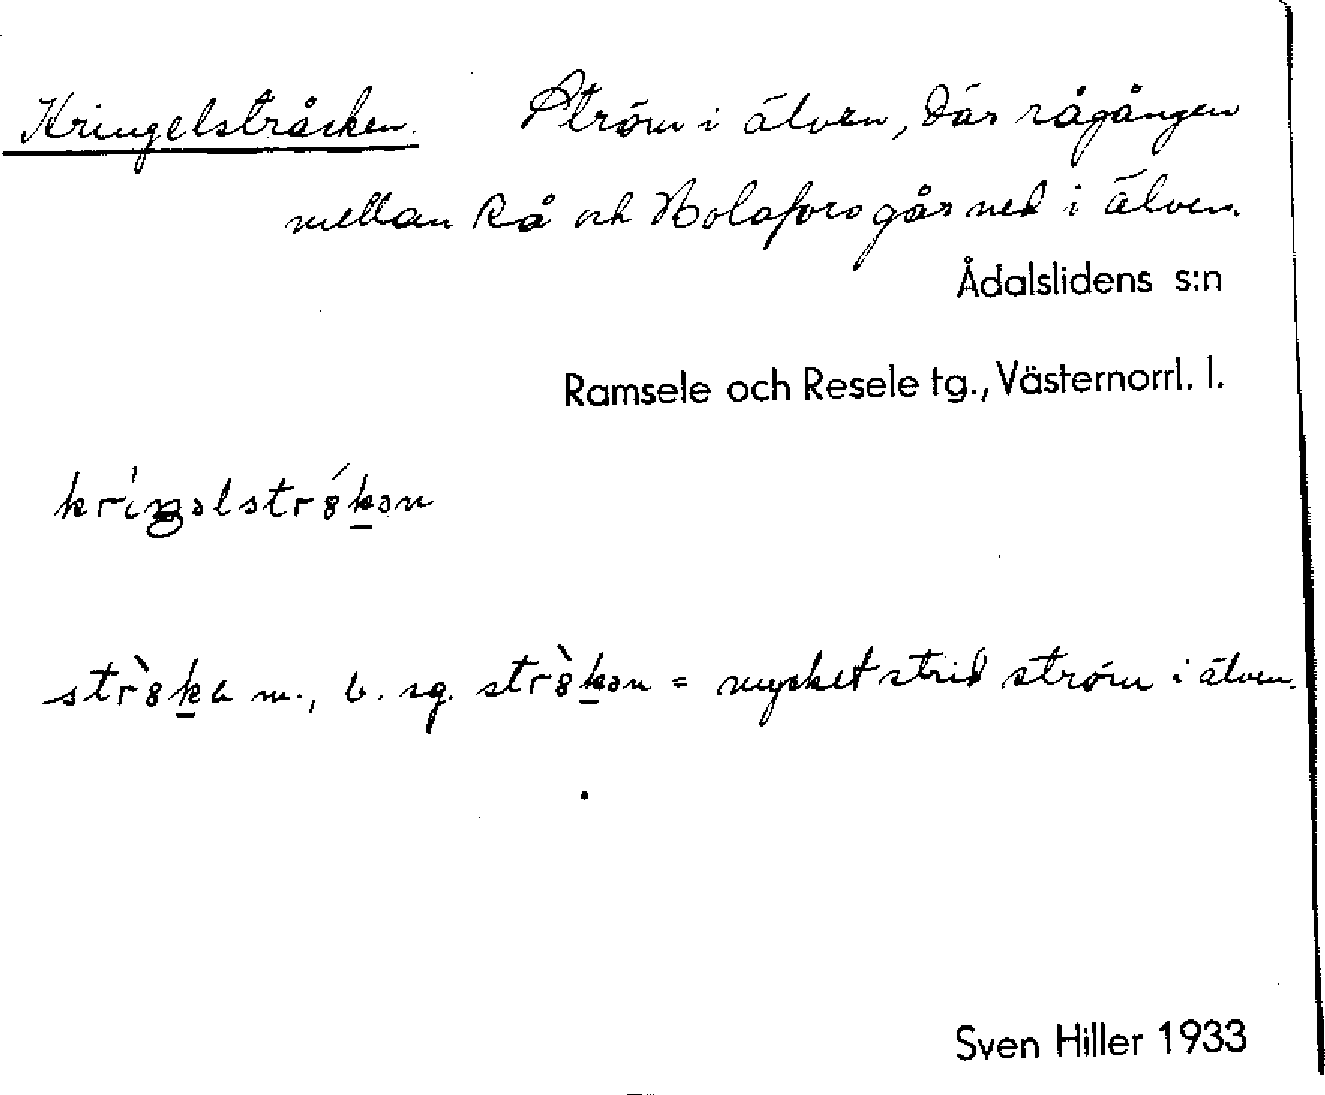 Kringelsträcken. Ström i älven, där rågången
mellan Rå och Holafors går ned i älven.
Ådalslidens s:n
Ramsele och Resele tg., Västernorrl. l.
m., b. sg. = mycket strid ström i älven.
Sven Hiller 1933